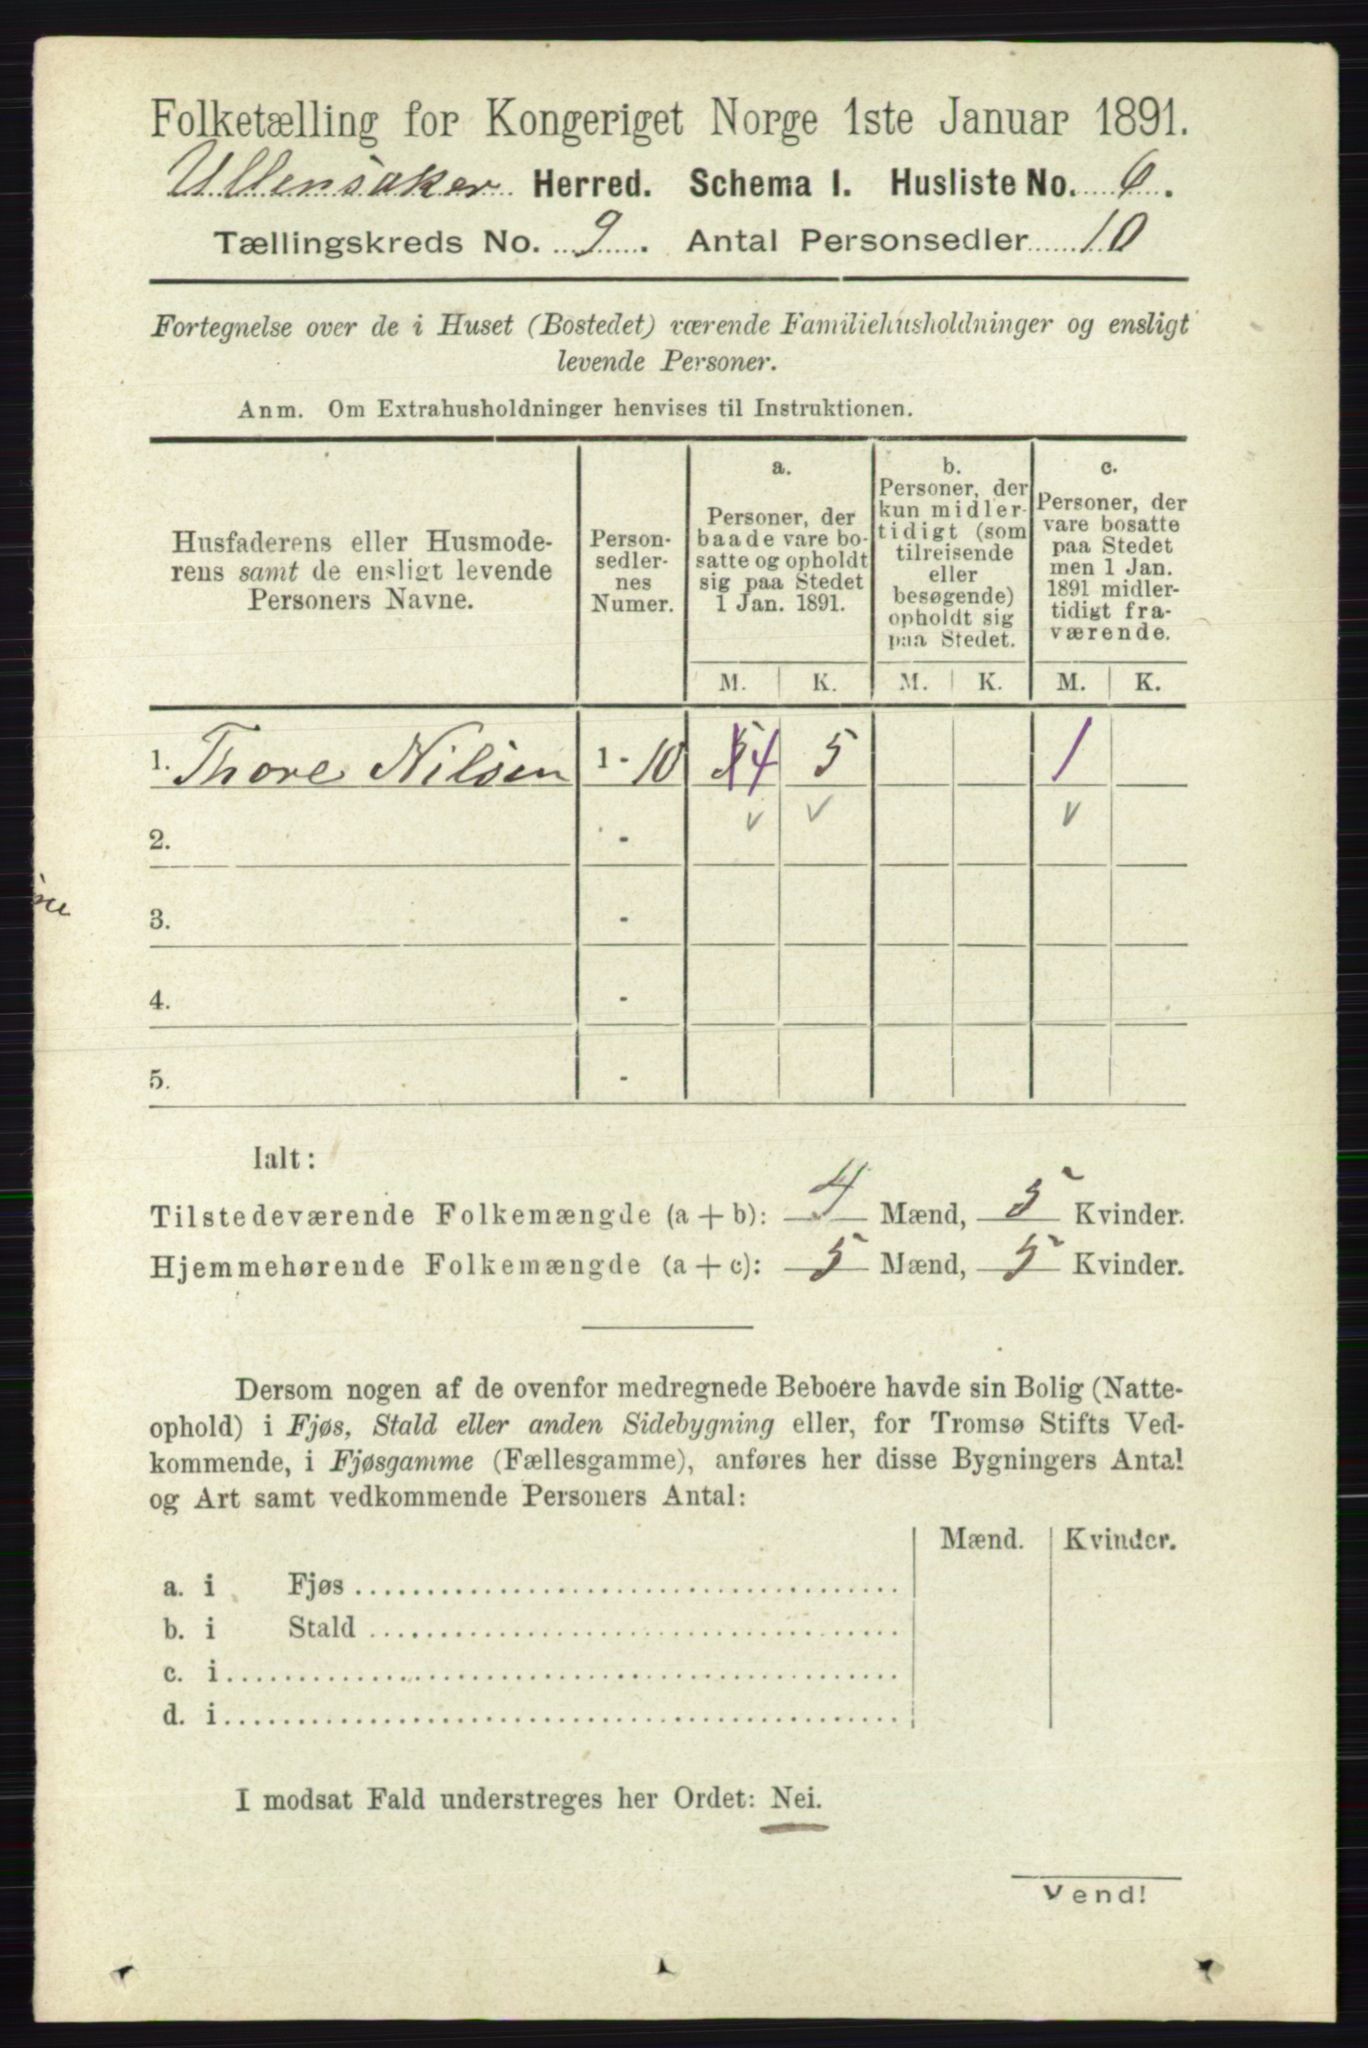 Folketælling for Kongeriget Norge 1ste Januar 1891.
Ullensaker Herred. Schema I. Husliste No. 6.
Tællingskreds No. 9. Antal Personsedler 10
Fortegnelse over de i Huset (Bostedet) værende Familiehusholdninger og ensligt
levende Personer.
Anm. Om Extrahusholdninger henvises til Instruktionen.
Husfaderens eller Husmode-
rens samt de ensligt levende
Personers Navne.
Person-
sedler-
nes
Numer.
a.
Personer, der
baade vare bo-
satte og opholdt
sig paa Stedet
1 Jan. 1891.
b.
Personer, der
kun midler-
tidigt (som
tilreisende
eller
besøgende)
opholdt sig
paa Stedet.
c.
Personer, der
vare bosatte
paa Stedet
men 1 Jan.
1891 midler-
tidigt fra-
værende.
M. K. M. K. M. K.
1. Thore Nilsen 1 - 10 5 4 5 1
2. - v v v
3. -
4. -
5. -
Ialt:
Tilstedeværende Folkemængde (a + b): 4 Mænd, 5 Kvinder.
Hjemmehørende Folkemængde (a + c): 5 Mænd, 5 Kvinder.
Dersom nogen af de ovenfor medregnede Beboere havde sin Bolig (Natte-
ophold) i Fjøs, Stald eller anden Sidebygning eller, for Tromsø Stifts Ved-
kommende, i Fjøsgamme (Fællesgamme), anføres her disse Bygningers Antal
og Art samt vedkommende Personers Antal:
Mænd. Kvinder.
a. i Fjøs
b. i Stald
c. i
d. i
I modsat Fald understreges her Ordet: Nei.
Vend!